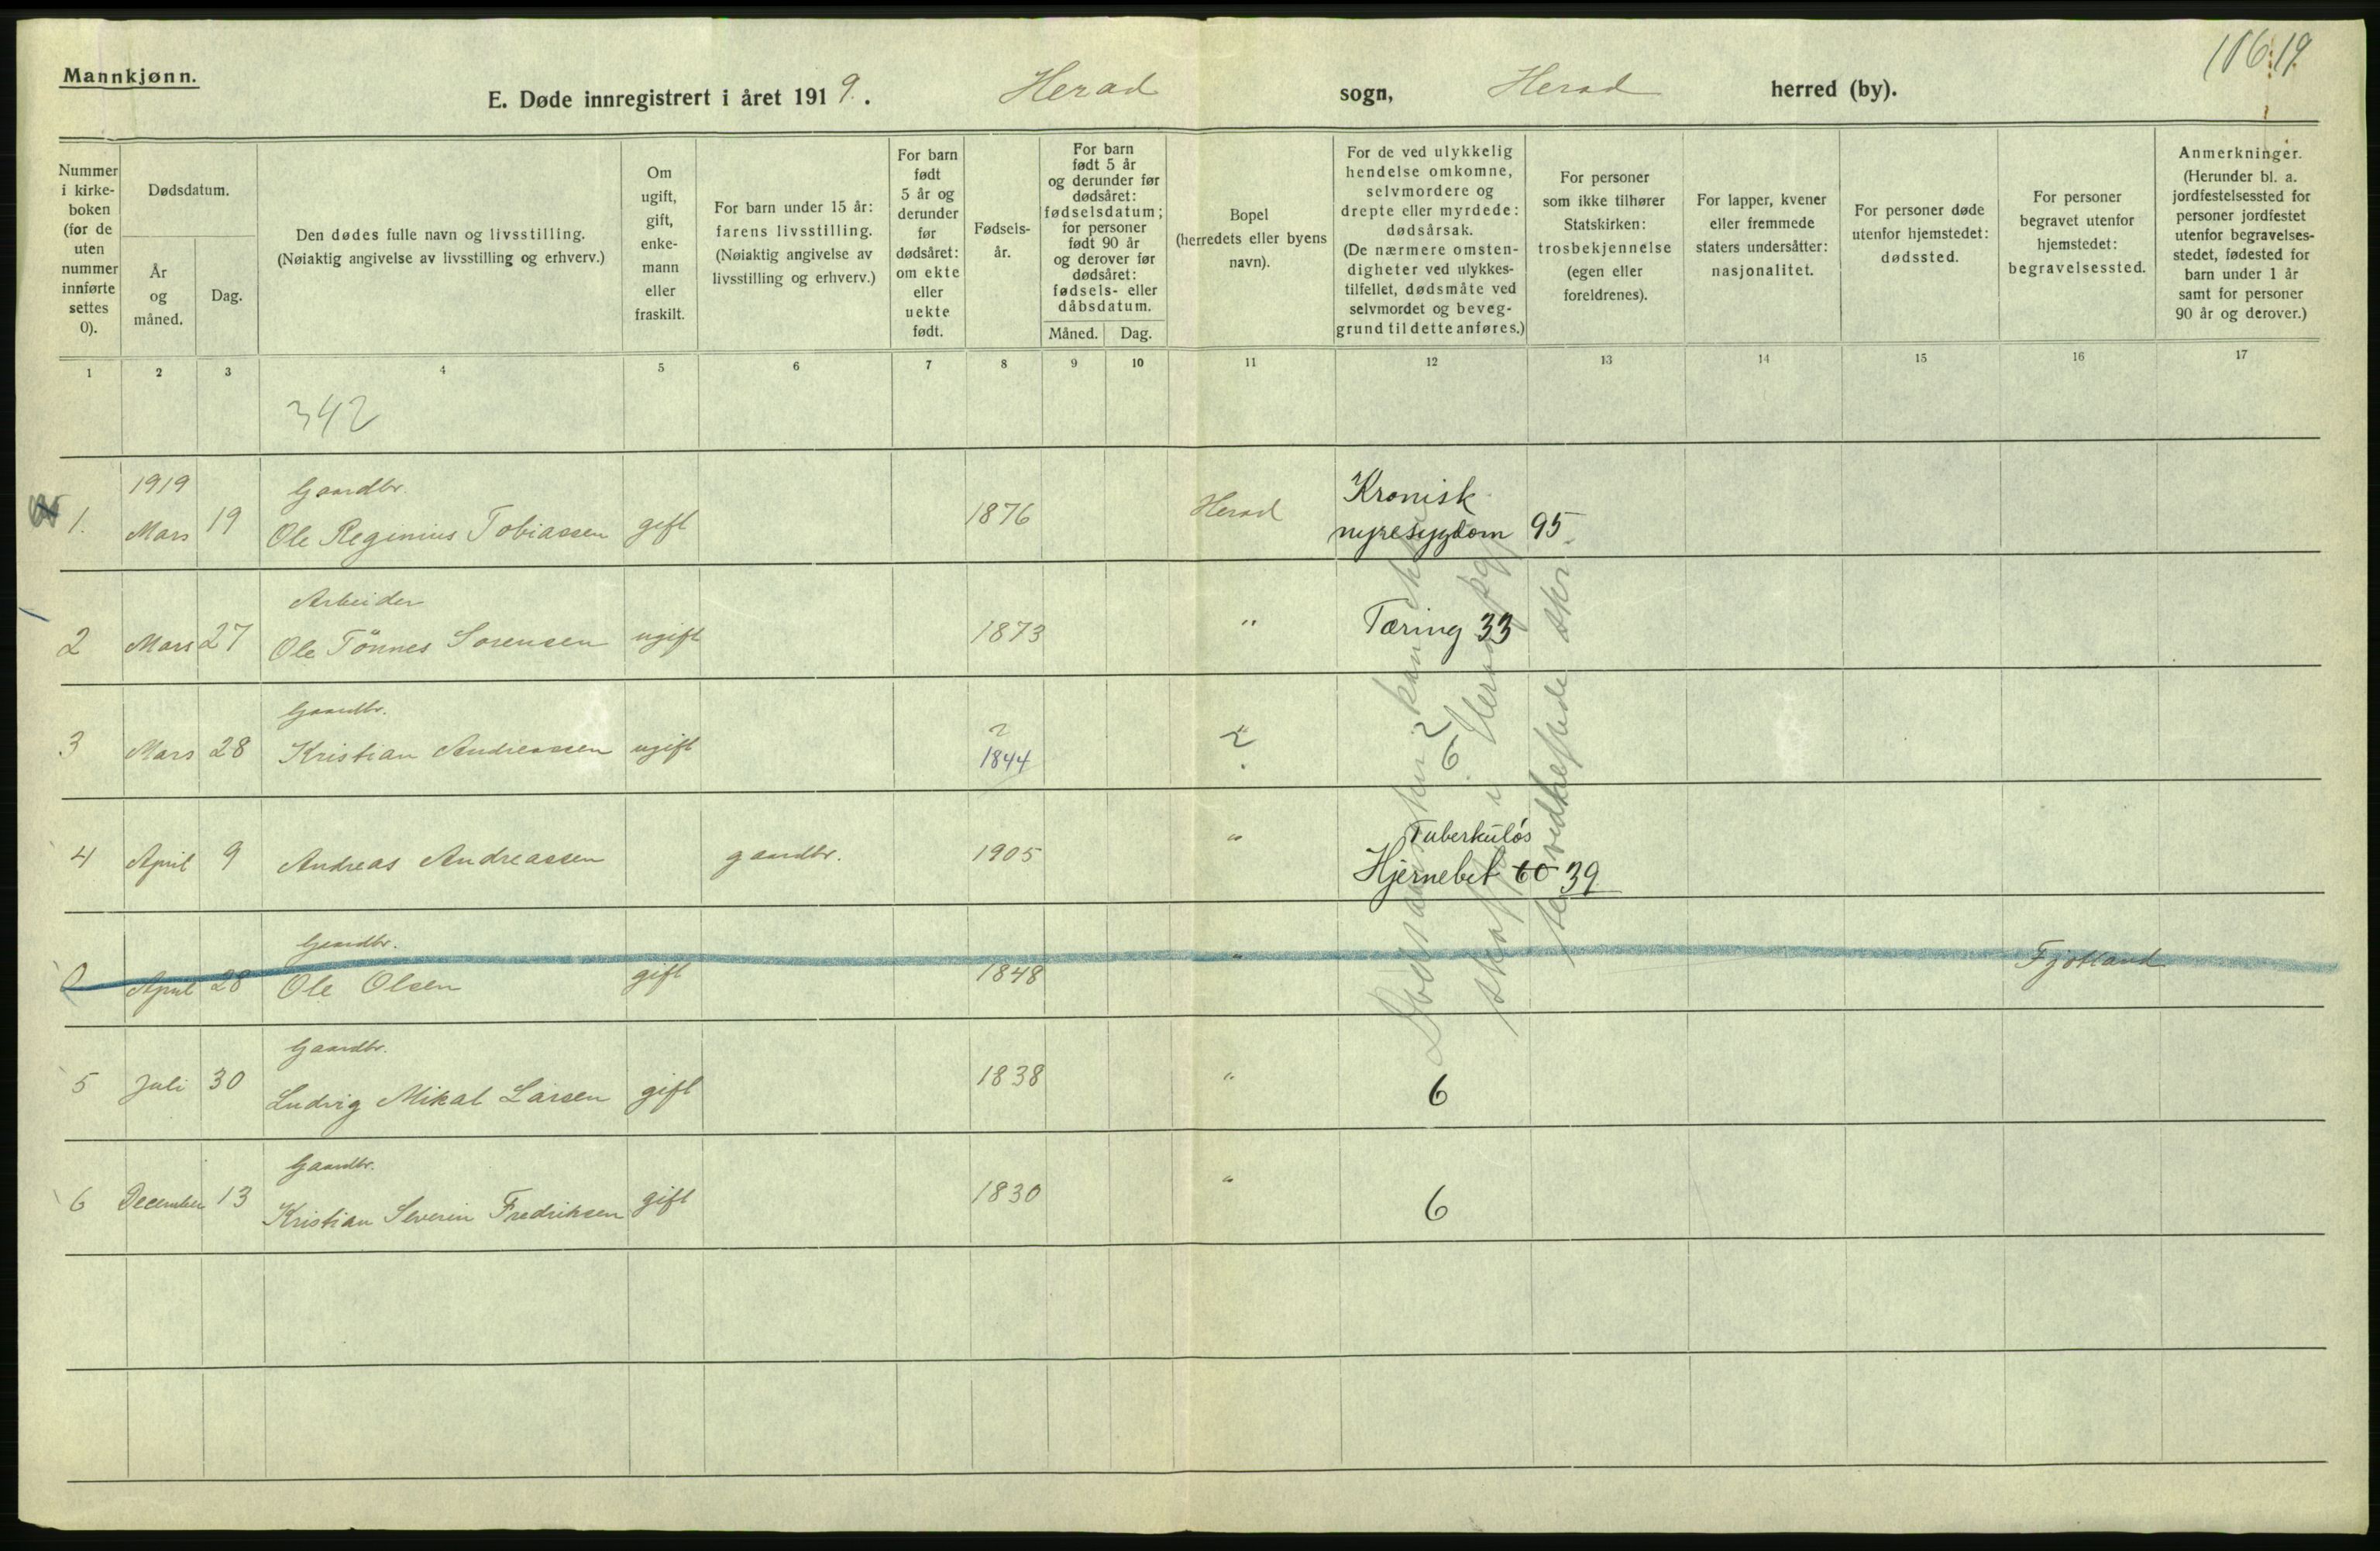 Mannkjønn.
E. Døde innregistrert i året 1919. Herad sogn, Herad herred (by).
Nummer i kirke-
boken
(for de
uten
nummer
innførte
settes
0).
Dødsdatum.
År
og
måned.
Dag.
Den dødes fulle navn og livsstilling.
(Nøiaktig angivelse av livsstilling og erhverv.)
Om
ugift,
gift,
enke-
mann
eller
fraskilt.
For barn under 15 år:
farens livsstilling.
(Nøiaktig angivelse av
livsstilling og erhverv.)
For barn
født
5 år og
derunder
før
dødsåret:
om ekte
eller
uekte
født.
Fødsels-
år.
For barn
født 5 år
og derunder før
dødsåret:
fødselsdatum;
for personer
født 90 år
og derover før
dødsåret:
fødsels- eller
dåbsdatum.
Måned. Dag.
Bopel
(herredets eller byens
navn).
For de ved ulykkelig
hendelse omkomne,
selvmordere og
drepte eller myrdede:
dødsårsak.
(De nærmere omsten-
digheter ved ulykkes-
tilfellet, dødsmåte ved
selvmordet og beveg-
grund til dette anføres.)
For personer
som ikke tilhører
Statskirken:
trosbekjennelse
(egen eller
foreldrenes).
For lapper, kvener
eller fremmede
staters undersåtter:
nasjonalitet.
For personer døde
utenfor hjemstedet:
dødssted.
For personer
begravet utenfor
hjemstedet:
begravelsessted.
Anmerkninger.
(Herunder bl. a.
jordfestelsessted for
personer jordfestet
utenfor begravelses-
stedet, fødested for
barn under 1 år
samt for personer
90 år og derover.)
1 2 3 4 5 6 7 8 9 10 11 12 13 14 15 16 17
342
1919 Gaardbr. Kronisk
1. Mars 19 Ole Reginius Tobiassen gift 1876 Herad nyresygdom 95
Arbeider
2 Mars 27 Ole Tönnes Sorensen ugift 1873 " Tæring 33
Gaardbr. ?
3 Mars 28 Kristian Andreassen ugift 1844 ? 6
Tuberkuløs
4 April 9 Andreas Andreassen gaardbr. 1905 " Hjernebet 60 39
Gaardbr.
0 April 28 Ole Olsen gift 1848 " Fjotland
Gaardbr.
5 Juli 30 Ludvig Mikal Larsen gift 1838 " 6
Gaardbr.
6 December 13 Kristian Severin Fredriksen gift 1830 " 6